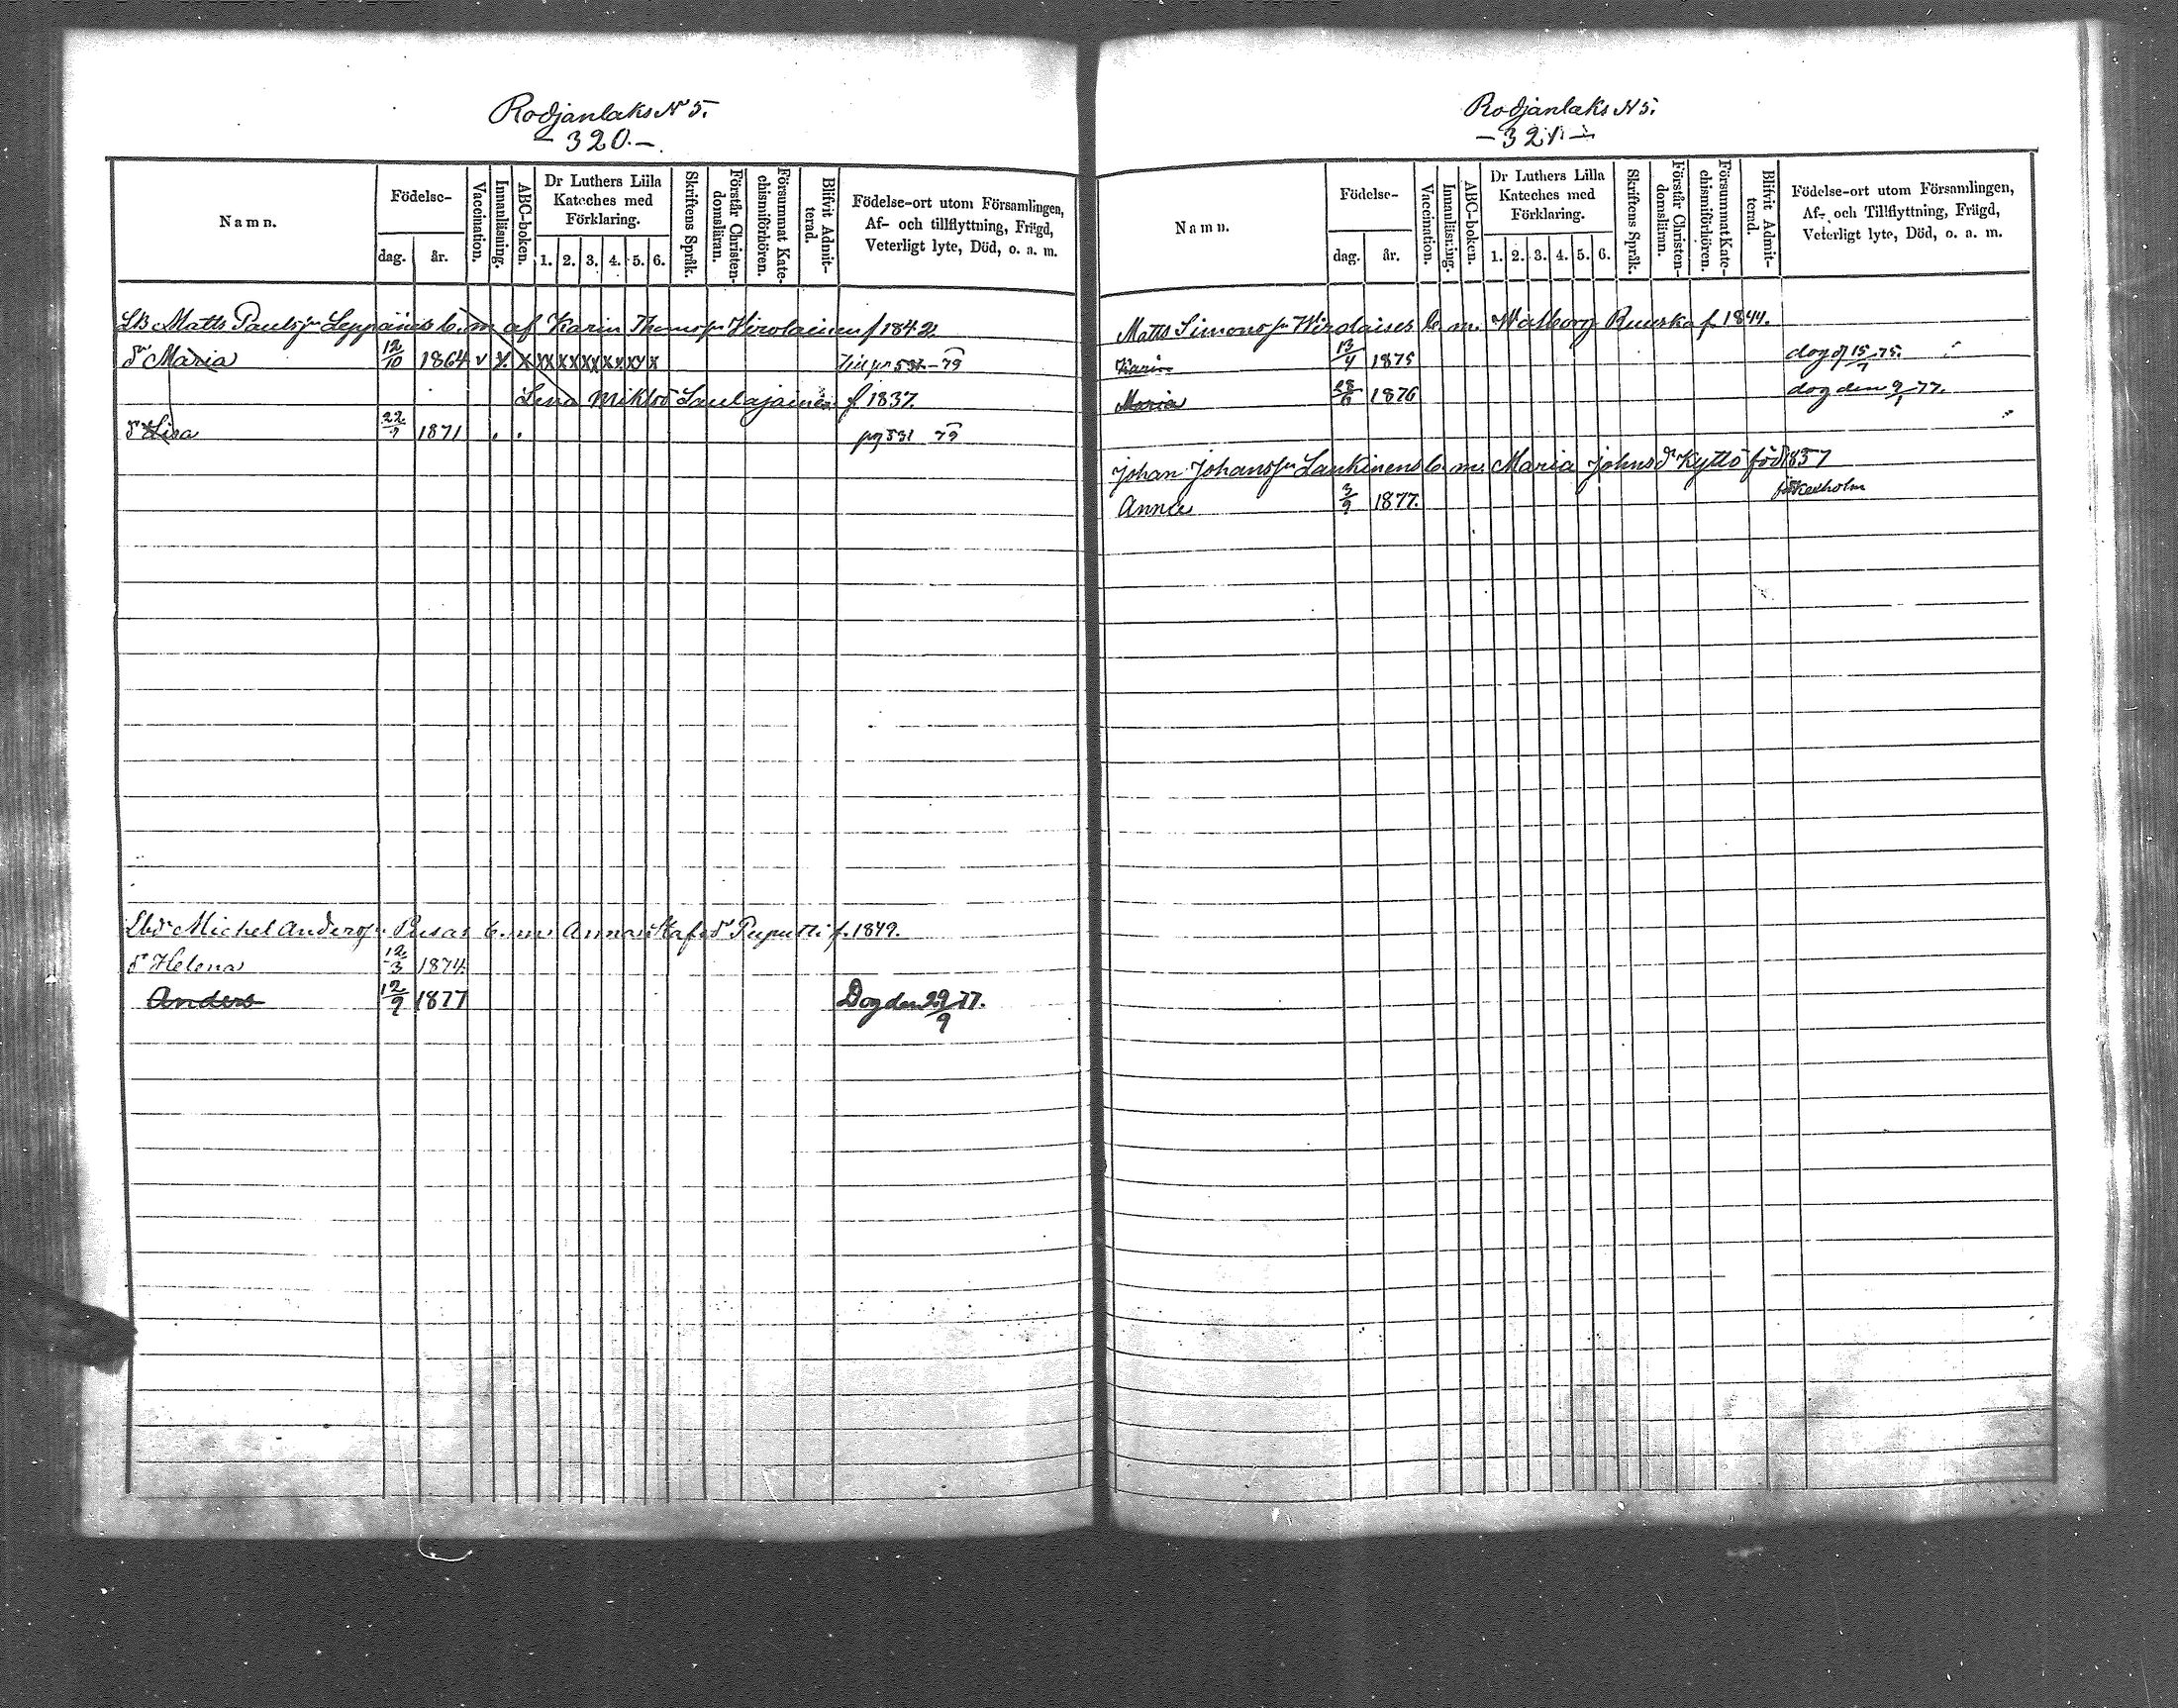 Rodjanlaks N 5.
- 320. -.
Namn.
Födelse-
dag. år.
Vaccination.
Innanläsning.
ABC-boken.
Dr Luthers Lilla Kateches med Förklaring.
1. 2. 3. 4. 5. 6.
Skriftens Språk.
Förstår Christen-domsläran.
Försummat Kate-chismiförhören.
Blifvit Admit-terad.
Födelse-ort utom Församlingen,
Af- och tillflyttning, Frägd,
Veterligt lyte, Död, o. a. m.
LB Matts Paulsn Leppänes b. m. af Karin Thomasn Hirolainen f 1842
dr Maria 12/10 1864 v x. x xx xx xx xx xx x 531 - 79
Lena Saulajainen f 1837.
dr Lisa 22/9 1871 . . pg 531 79
Michel Andersn. Rusas b. m. Anna Puputti f. 1849.
dr Helena 12/3 1874
Anders 12/9 1877 Dog den 29/9 77.
Rodjanlaks N 5.
- 321. -
Namn.
Födelse-
dag. år.
Vaccination.
Innanläsning.
ABC-boken.
Dr Luthers Lilla Kateches med Förklaring.
1. 2. 3. 4. 5. 6.
Skriftens Språk.
Förstår Christen-domsläran.
Försummat Kate-chismiförhören.
Blifvit Admit-terad.
Födelse-ort utom Församlingen,
Af- och Tillflyttning, Frägd,
Veterligt lyte, Död, o. a. m.
Matts Simonsn Hirolaises b. m. Walborg Ruuska f. 1844.
Karin 13/4 1875 dog d 15/7 75.
Maria 1876 dog den 9/1 77.
Johan Johansn Laukinens b. m. Maria Johnsdr Kyttö född 1857
Anna 3/9 1877. Kexholm